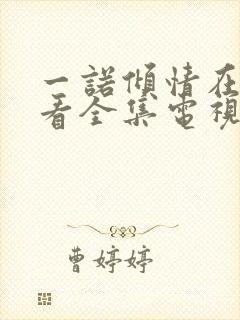 一諾傾情在
看全集電視
曹婷婷